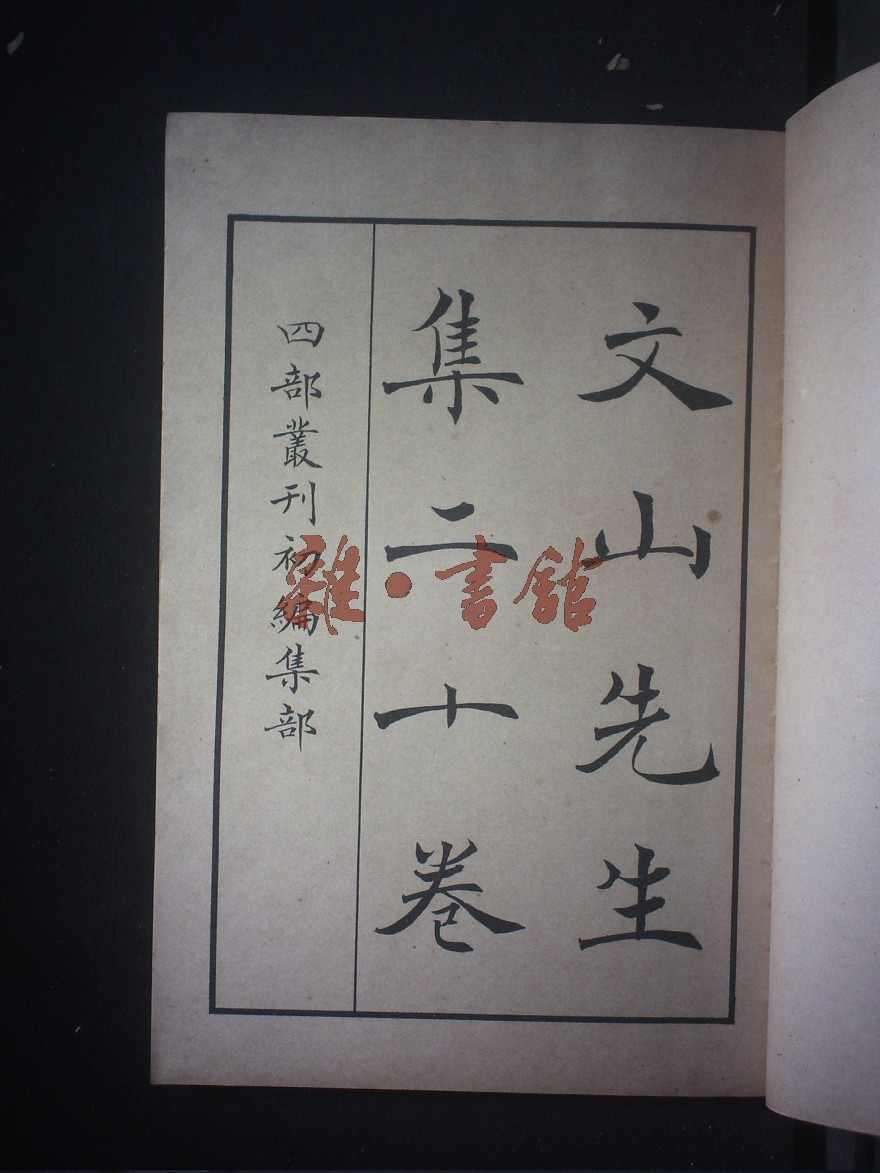 文山先生
集二十卷
四部叢刊初編集部
雜·書館